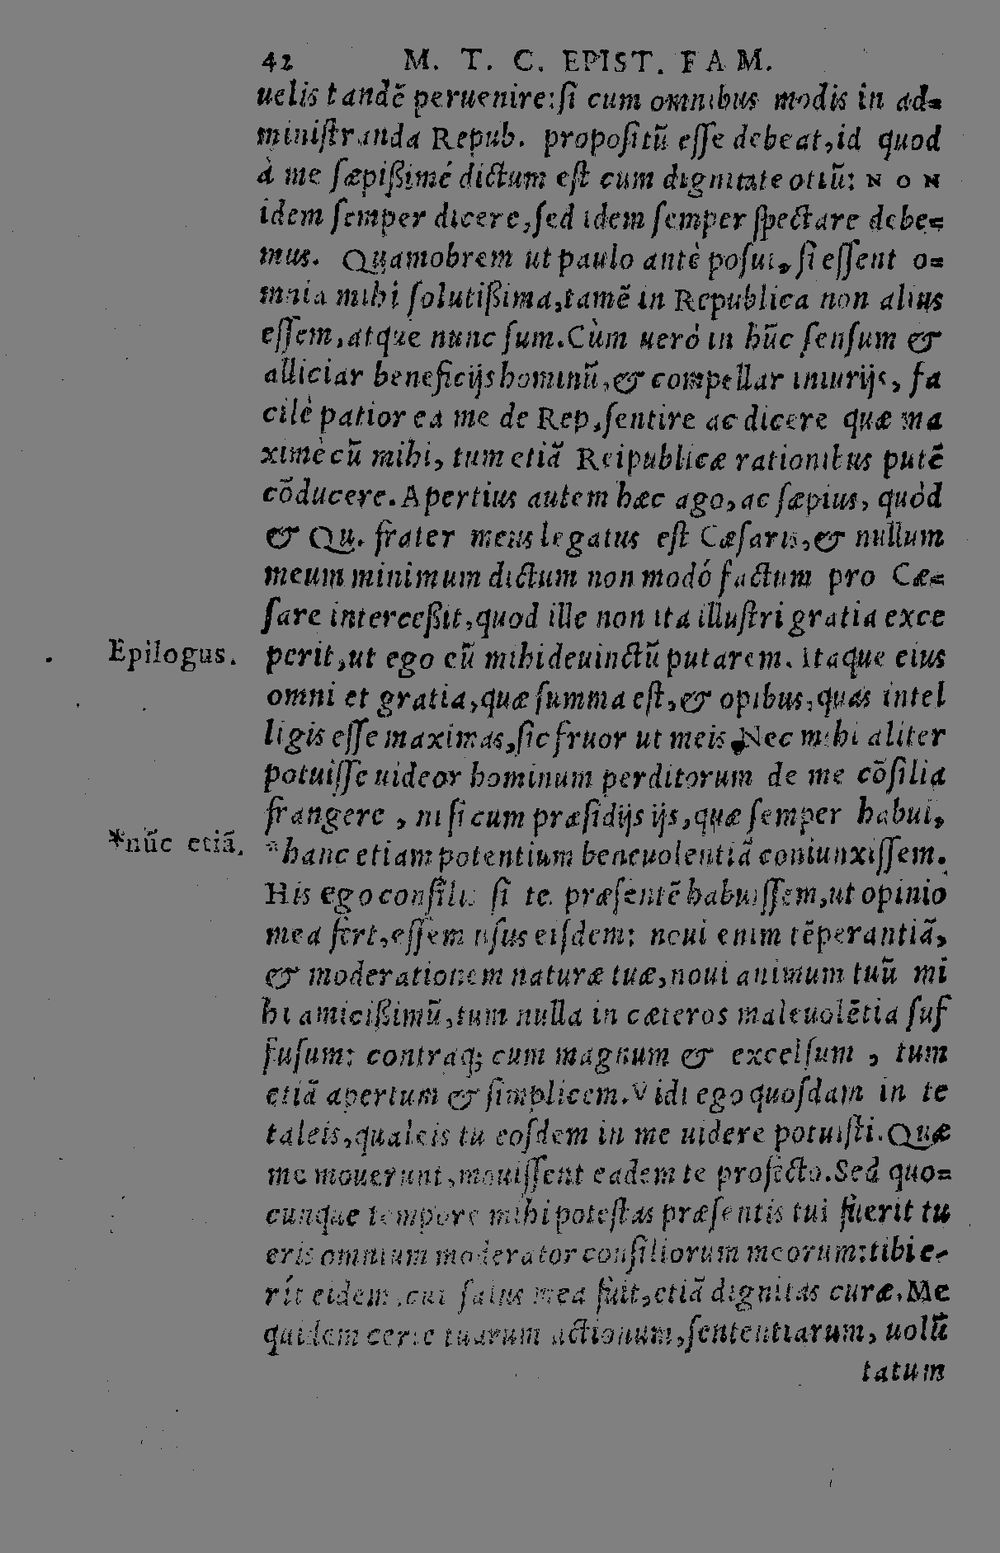 42 M. T. C. EPIST. FAM.
uelis tandẽ peruenire:si cum omnibus modis in ad=
ministranda Repub. propositũ esse debeat,id quod
à me sæpißimé dictum est cum dignitate otiũ: NON
idem semper dicere,sed idem semper spectare debe=
mus. Quamobrem ut paulo antè posui, si essent o=
mnia mihi solutißima,tamẽ in Republica non alius
essem,atque nunc sum.Cùm ueró in hũc sensum &
alliciar beneficijs hominũ,& compellar iniurijs, fa
cilè patior ea me de Rep,sentire ac dicere quæ ma
ximè cũ mihi, tum etiã Reipublicæ rationibus putẽ
cõducere.Apertius autem hæc ago,ac sæpius, quòd
& Qu. frater meus legatus est Cæsaris,& nullum
meum minimum dictum non modó factum pro Cæ=
sare interceßit,quod ille non ita illustri gratia exce
Epilogus. perit,ut ego cũ mihi deuinctũ putarem. itaque eius
omni et gratia,quæ summa est,& opibus,quas intel
ligis esse maximas,sic fruor ut meis.Nec mihi aliter
potuisse uideor hominum perditorum de me cõsilia
frangere , nisi cum præsidijs ijs,quæ semper habui,
*nũc etiã. *hanc etiam potentium beneuolentiã coniunxissem.
His ego consiliis si te præsentẽ habuissem,ut opinio
mea fert,essem usus eisdem: noui enim tẽperantiã,
& moderationem naturæ tuæ,noui animum tuũ mi
hi amicißimũ,tum nulla in cæteros maleuolẽtia suf
fusum: contraq; cum magnum & excelsum , tum
etiã apertum & simplicem.Vidi ego quosdam in te
taleis,qualeis tu eosdem in me uidere potuisti.Quæ
me mouerunt,mouissent eadem te profecto.Sed quo=
cunque tempore mihi potestas præsentis tui fuerit tu
eris omnium moderator consiliorum meorum:tibi e-
rít eidem,cui salus mea fuit,etiã dignitas curæ.Me
quidem certe tuarum actionum,sententiarum, uolũ
tatum